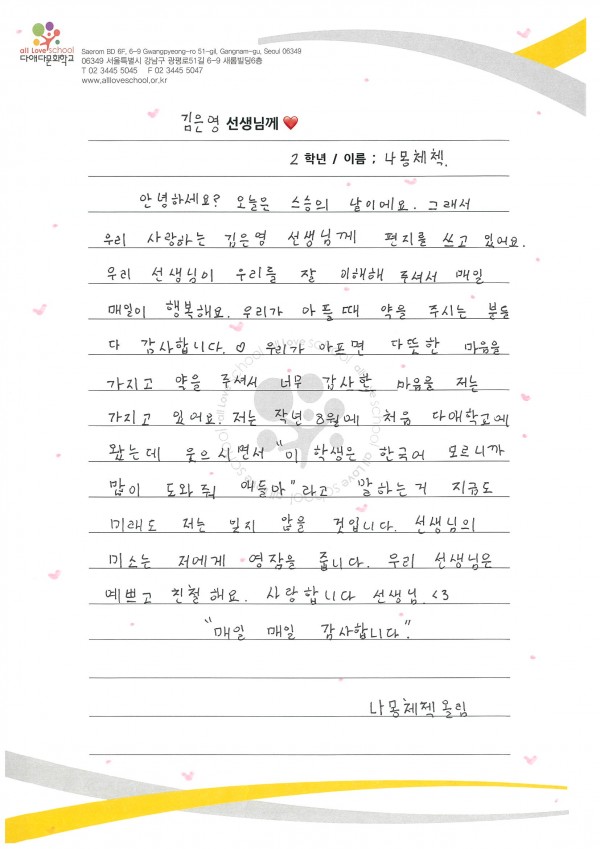 all Love school
다애다문화학교
Saerom BD 6F, 6-9 Gwangpyeong-ro 51-gil, Gangnam-gu, Seoul 06349
06349 서울특별시 강남구 광평로51길 6-9 새롬빌딩6층
T 02 3445 5045 F 02 3445 5047
www.allloveschool.or.kr
김은영 선생님께 ❤️
2 학년 / 이름 ; 나몽체첵.
안녕하세요? 오늘은 스승의 날이에요. 그래서
우리 사랑하는 김은영 선생님께 편지를 쓰고 있어요.
우리 선생님이 우리를 잘 이해해 주셔서 매일
매일이 행복해요. 우리가 아플때 약을 주시는 분들
다 감사합니다. ♡ 우리가 아프면 다뜻한 마음을
가지고 약을 주셔서 너무 감사한 마음을 저는
가지고 있어요. 저는 작년 8월에 처음 다애학교에
왔는데 웃으시면서 "이 학생은 한국어 모르니까
많이 도와줘 얘들아"라고 말하는거 지금도
미래도 저는 잊지 않을 것입니다. 선생님의
미소는 저에게 영감을 줍니다. 우리 선생님은
예쁘고 친절해요. 사랑합니다 선생님. <3
"매일 매일 감사합니다".
나몽체첵올림
all Love school all Love school all Love school